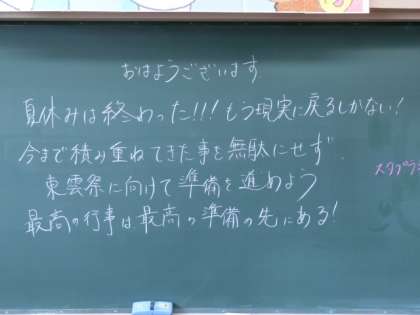 おはようございます
夏休みは終わった!!! もう現実に戻るしかない!
今まで積み重ねてきた事を無駄にせず、
東雲祭に向けて準備を進めよう
最高の行事は最高の準備の先にある!
スタプラ